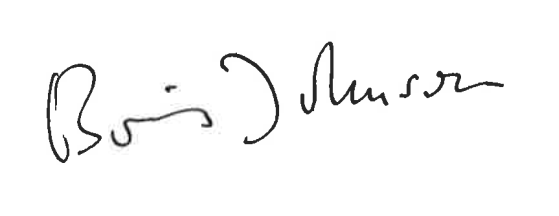 Boris Johnson